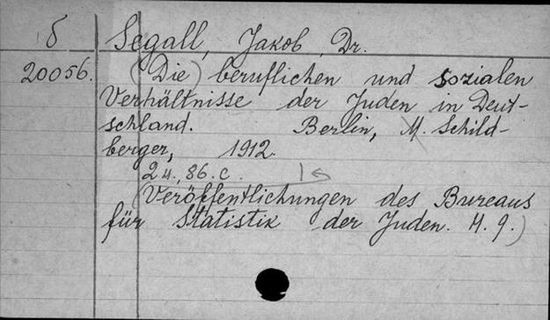 б Segall, Jakob, Dr.
20056. (Die) beruflichen und sozialen
Verhältnisse der Juden in Deut-
schland. Berlin, M. Schild-
berger, 1912.
24., 86. c.
(Veröffentlichungen des Bureaus
für Statistik der Juden. H. 9.)